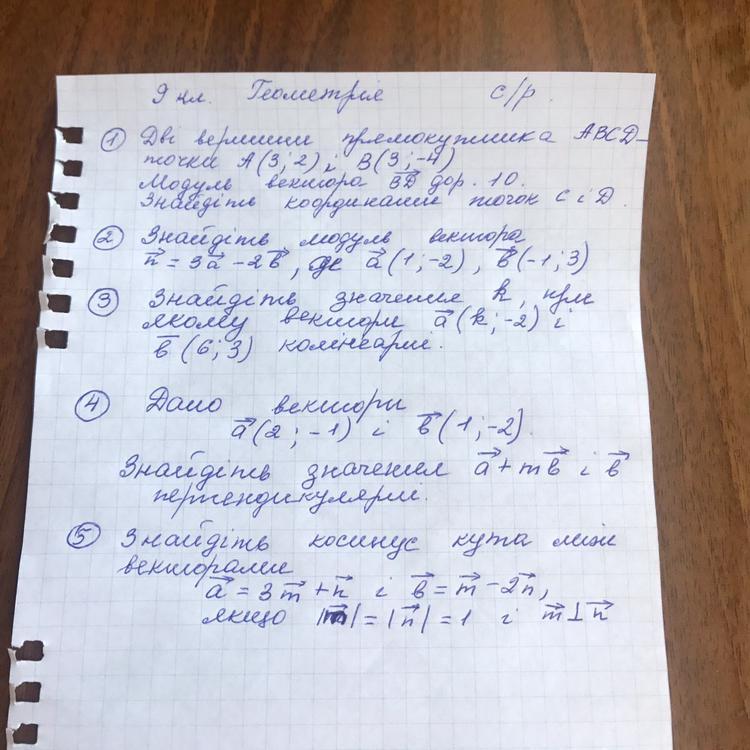 9 кл. Геометрія с/р.
① Дві вершини прямокутника ABCD -
точки A(3; 2) і B(3; -4)
Модуль вектора B͞D⃗ дор. 10.
Знайдіть координати точок C і D.
② Знайдіть модуль вектора
n⃗ = 3a⃗ - 2b⃗, де a⃗(1; -2), b⃗(-1; 3)
③ Знайдіть значення k, при
якому вектори a⃗(k; -2) і
b⃗(6; 3) колінеарні.
④ Дано вектори
a⃗(2; -1) і b⃗(1; -2).
Знайдіть значення a⃗ + mb⃗ і b⃗
перпендикулярні.
⑤ Знайдіть косинус кута між
векторами
a⃗ = 3m⃗ + n⃗ і b⃗ = m⃗ - 2n⃗,
якщо |m⃗| = |n⃗| = 1 і m⃗ ⊥ n⃗